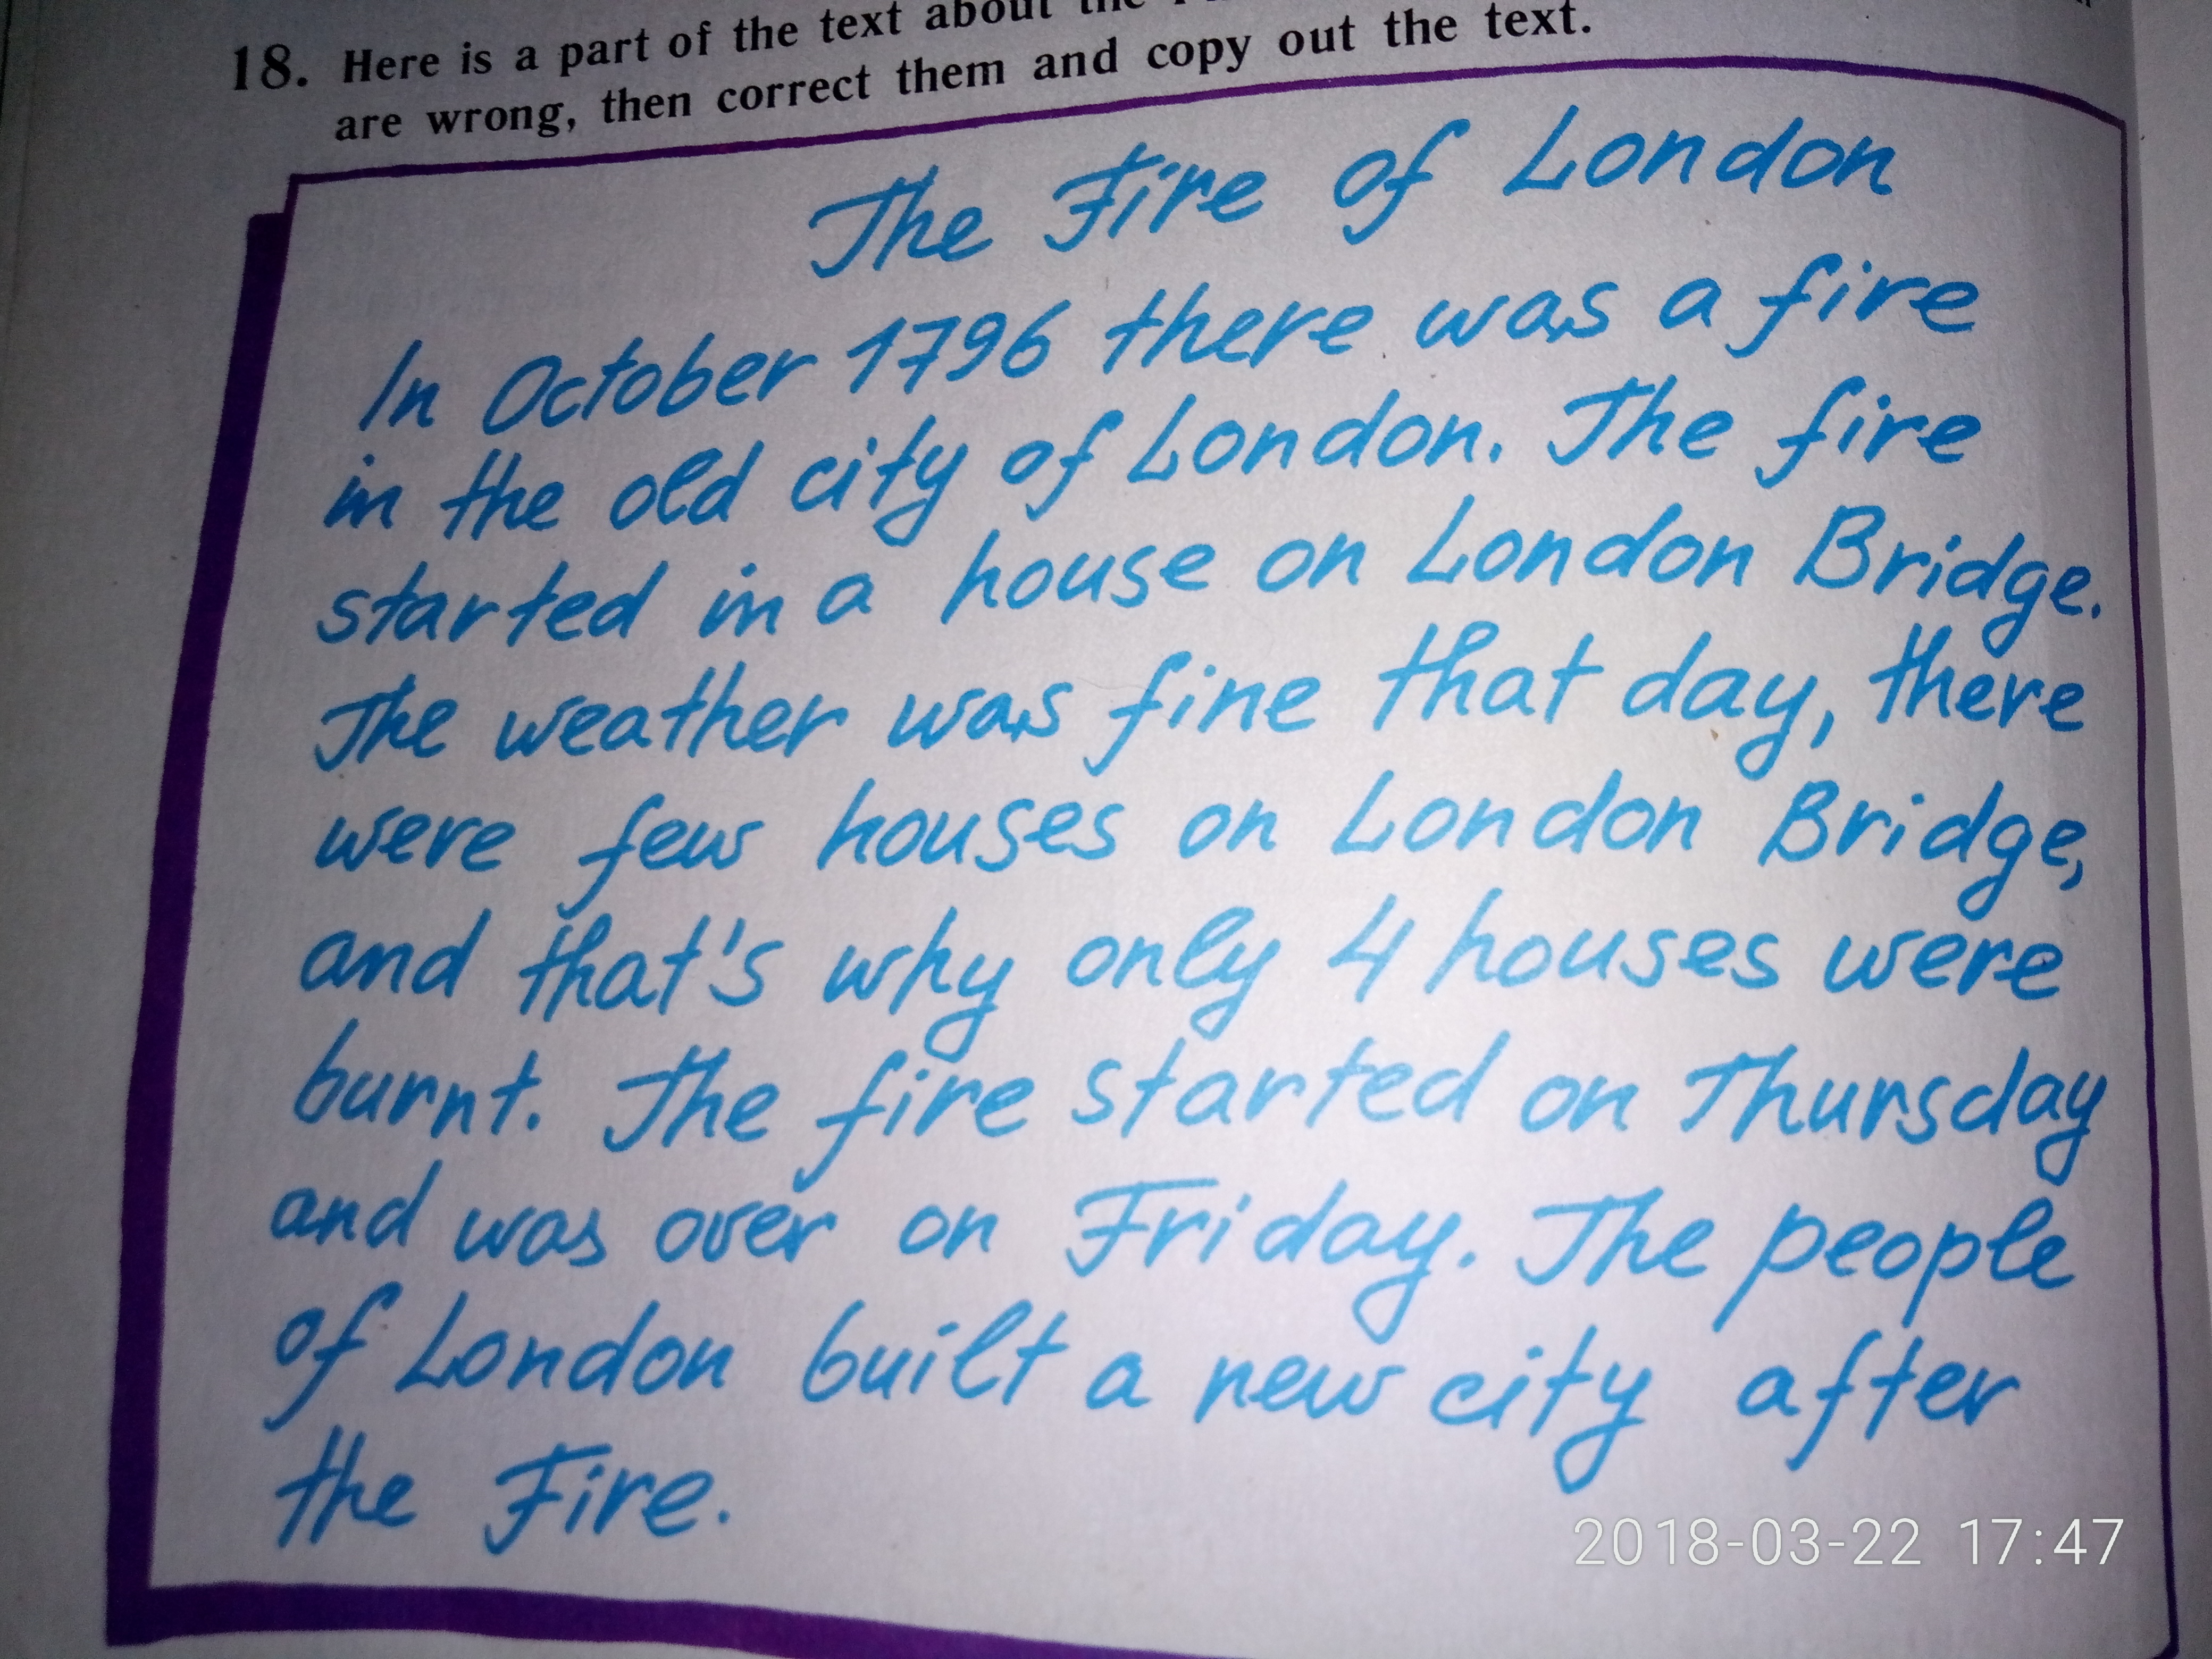 18. Here is a part of the text about the
are wrong, then correct them and copy out the text.
The Fire of London
In October 1796 there was a fire
in the old city of London. The fire
started in a house on London Bridge.
The weather was fine that day, there
were few houses on London Bridge,
and that's why only 4 houses were
burnt. The fire started on Thursday
and was over on Friday. The people
of London built a new city after
the Fire.
2018-03-22 17:47